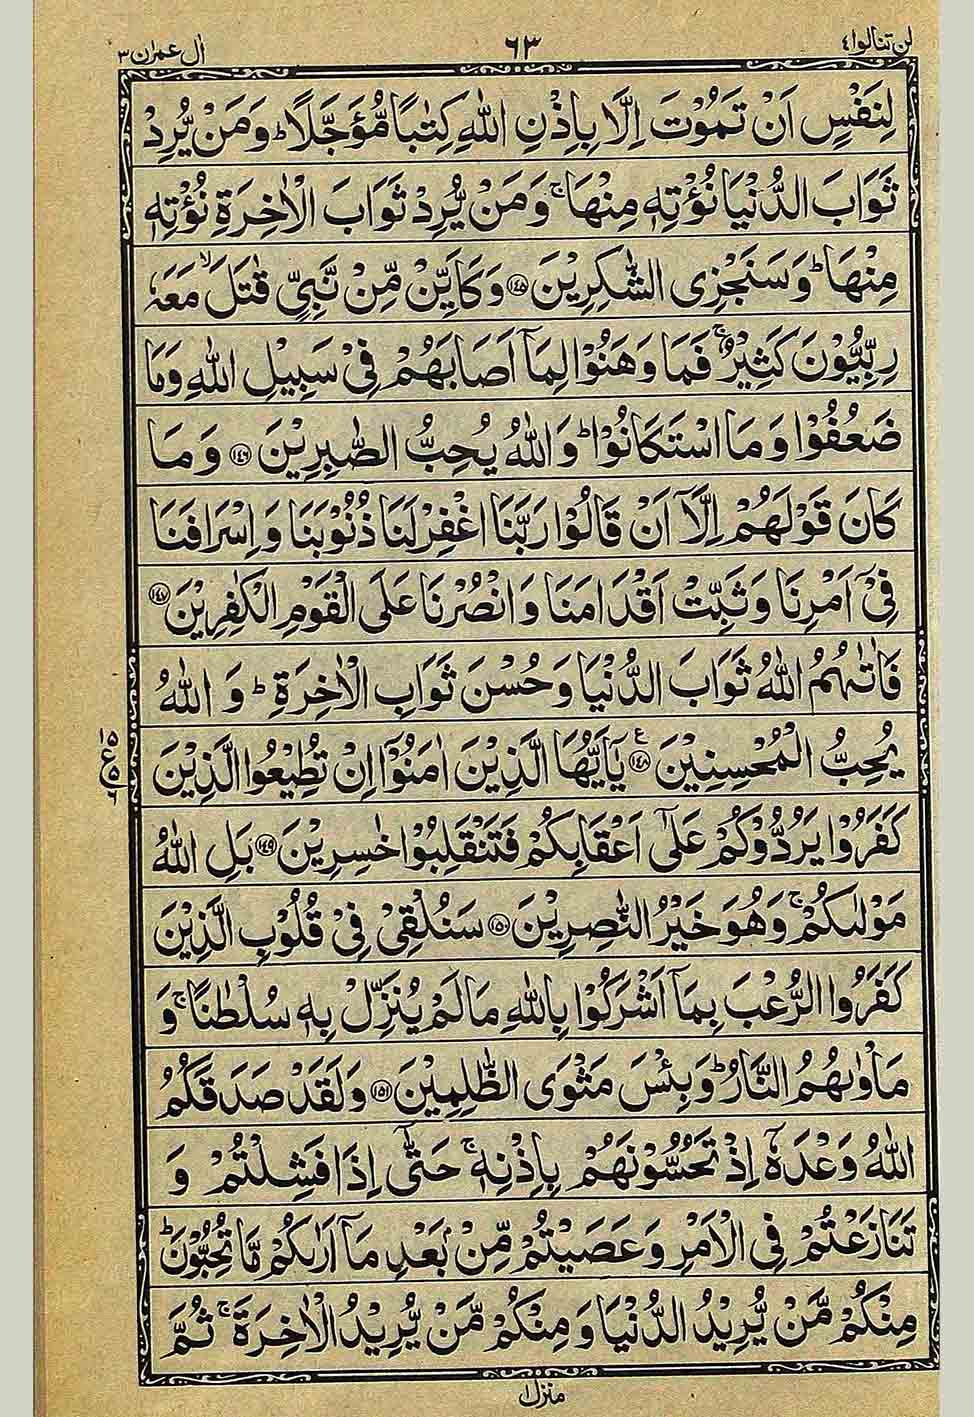 لن تنالوا ٤
٦٣
اٰل عمرٰن ٣
لِنَفْسٍ اَنْ تَمُوْتَ اِلَّا بِاِذْنِ اللّٰهِ كِتٰبًا مُّؤَجَّلًا ؕ وَمَنْ يُّرِدْ
ثَوَابَ الدُّنْيَا نُؤْتِهٖ مِنْهَا ۚ وَمَنْ يُّرِدْ ثَوَابَ الْاٰخِرَةِ نُؤْتِهٖ
مِنْهَا ؕ وَسَنَجْزِى الشّٰكِرِيْنَ ﴿۱۴۵﴾ وَكَاَيِّنْ مِّنْ نَّبِىٍّ قٰتَلَ ۙ مَعَهٗ
رِبِّيُّوْنَ كَثِيْرٌ ۚ فَمَا وَهَنُوْا لِمَاۤ اَصَابَهُمْ فِىْ سَبِيْلِ اللّٰهِ وَمَا
ضَعُفُوْا وَمَا اسْتَكَانُوْا ؕ وَاللّٰهُ يُحِبُّ الصّٰبِرِيْنَ ﴿۱۴۶﴾ وَمَا
كَانَ قَوْلَهُمْ اِلَّاۤ اَنْ قَالُوْا رَبَّنَا اغْفِرْ لَنَا ذُنُوْبَنَا وَاِسْرَافَنَا
فِىْۤ اَمْرِنَا وَثَبِّتْ اَقْدَامَنَا وَانْصُرْنَا عَلَى الْقَوْمِ الْكٰفِرِيْنَ ﴿۱۴۷﴾
فَاٰتٰىهُمُ اللّٰهُ ثَوَابَ الدُّنْيَا وَحُسْنَ ثَوَابِ الْاٰخِرَةِ ؕ وَاللّٰهُ
يُحِبُّ الْمُحْسِنِيْنَ ﴿۱۴۸﴾ ع يٰۤاَيُّهَا الَّذِيْنَ اٰمَنُوْۤا اِنْ تُطِيْعُوا الَّذِيْنَ
۱۵
ع ۵
۶
كَفَرُوْا يَرُدُّوْكُمْ عَلٰٓى اَعْقَابِكُمْ فَتَنْقَلِبُوْا خٰسِرِيْنَ ﴿۱۴۹﴾ بَلِ اللّٰهُ
مَوْلٰىكُمْ ۚ وَهُوَ خَيْرُ النّٰصِرِيْنَ ﴿۱۵۰﴾ سَنُلْقِىْ فِىْ قُلُوْبِ الَّذِيْنَ
كَفَرُوا الرُّعْبَ بِمَاۤ اَشْرَكُوْا بِاللّٰهِ مَا لَمْ يُنَزِّلْ بِهٖ سُلْطٰنًا ۚ وَ
مَاْوٰىهُمُ النَّارُ ؕ وَبِئْسَ مَثْوَى الظّٰلِمِيْنَ ﴿۱۵۱﴾ وَلَقَدْ صَدَقَكُمُ
اللّٰهُ وَعْدَهٗۤ اِذْ تَحُسُّوْنَهُمْ بِاِذْنِهٖ ۚ حَتّٰۤى اِذَا فَشِلْتُمْ وَ
تَنَازَعْتُمْ فِى الْاَمْرِ وَعَصَيْتُمْ مِّنْۢ بَعْدِ مَاۤ اَرٰىكُمْ مَّا تُحِبُّوْنَ ؕ
مِنْكُمْ مَّنْ يُّرِيْدُ الدُّنْيَا وَمِنْكُمْ مَّنْ يُّرِيْدُ الْاٰخِرَةَ ۚ ثُمَّ
منزل ١